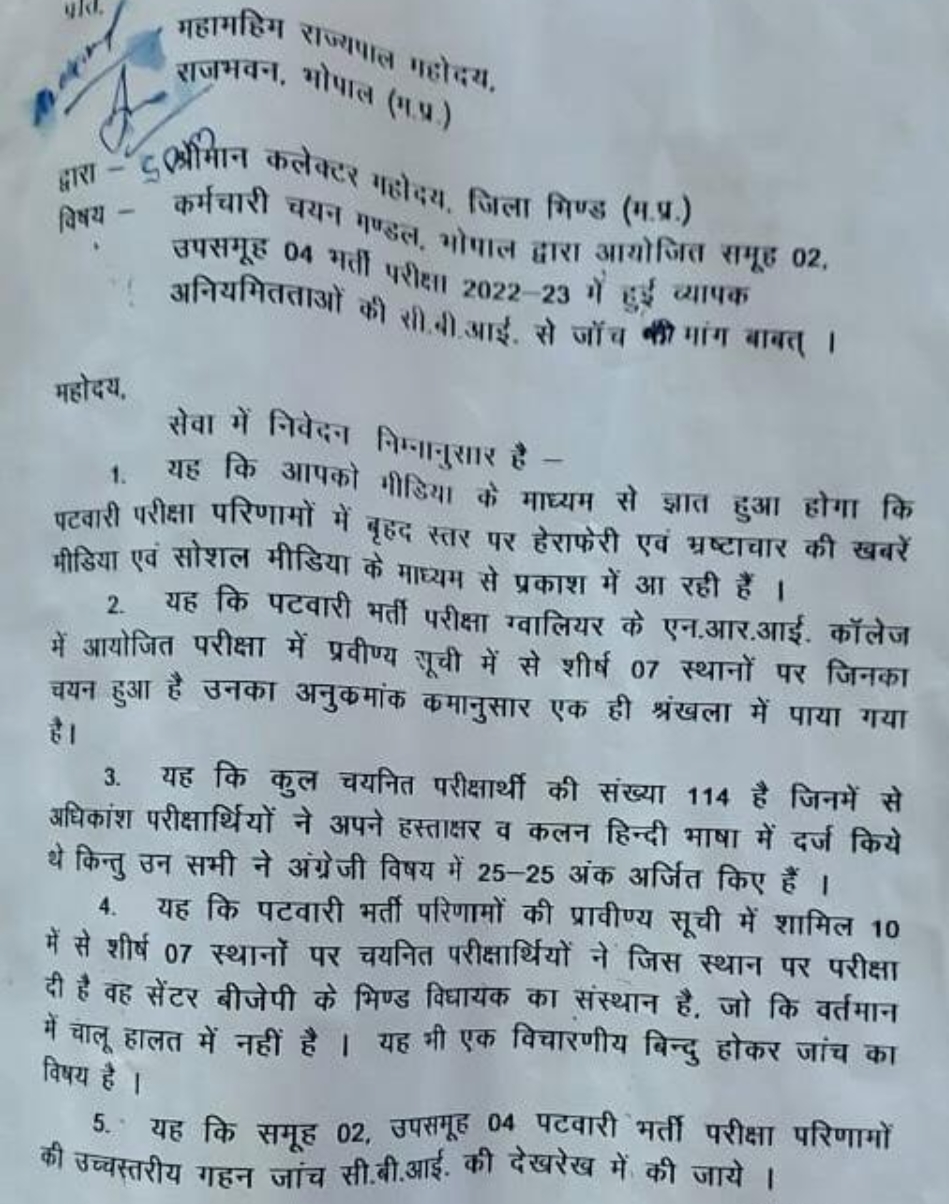 प्रति,
महामहिम राज्यपाल महोदय,
राजभवन, भोपाल (म.प्र.)
द्वारा – श्रीमान कलेक्टर महोदय, जिला भिण्ड (म.प्र.)
विषय – कर्मचारी चयन मण्डल, भोपाल द्वारा आयोजित समूह 02,
उपसमूह 04 भर्ती परीक्षा 2022–23 में हुई व्यापक
अनियमितताओं की सी.बी.आई. से जॉच की मांग बाबत् ।
महोदय,
सेवा में निवेदन निम्नानुसार है –
1. यह कि आपको मीडिया के माध्यम से ज्ञात हुआ होगा कि
पटवारी परीक्षा परिणामों में बृहद स्तर पर हेराफेरी एवं भ्रष्टाचार की खबरें
मीडिया एवं सोशल मीडिया के माध्यम से प्रकाश में आ रही हैं ।
2. यह कि पटवारी भर्ती परीक्षा ग्वालियर के एन.आर.आई. कॉलेज
में आयोजित परीक्षा में प्रवीण्य सूची में से शीर्ष 07 स्थानों पर जिनका
चयन हुआ है उनका अनुकमांक कमानुसार एक ही श्रंखला में पाया गया
है।
3. यह कि कुल चयनित परीक्षार्थी की संख्या 114 है जिनमें से
अधिकांश परीक्षार्थियों ने अपने हस्ताक्षर व कलन हिन्दी भाषा में दर्ज किये
थे किन्तु उन सभी ने अंग्रेजी विषय में 25–25 अंक अर्जित किए हैं ।
4. यह कि पटवारी भर्ती परिणामों की प्रावीण्य सूची में शामिल 10
में से शीर्ष 07 स्थानों पर चयनित परीक्षार्थियों ने जिस स्थान पर परीक्षा
दी है वह सेंटर बीजेपी के भिण्ड विधायक का संस्थान है, जो कि वर्तमान
में चालू हालत में नहीं है । यह भी एक विचारणीय बिन्दु होकर जांच का
विषय है ।
5. यह कि समूह 02, उपसमूह 04 पटवारी भर्ती परीक्षा परिणामों
की उच्चस्तरीय गहन जांच सी.बी.आई. की देखरेख में की जाये ।